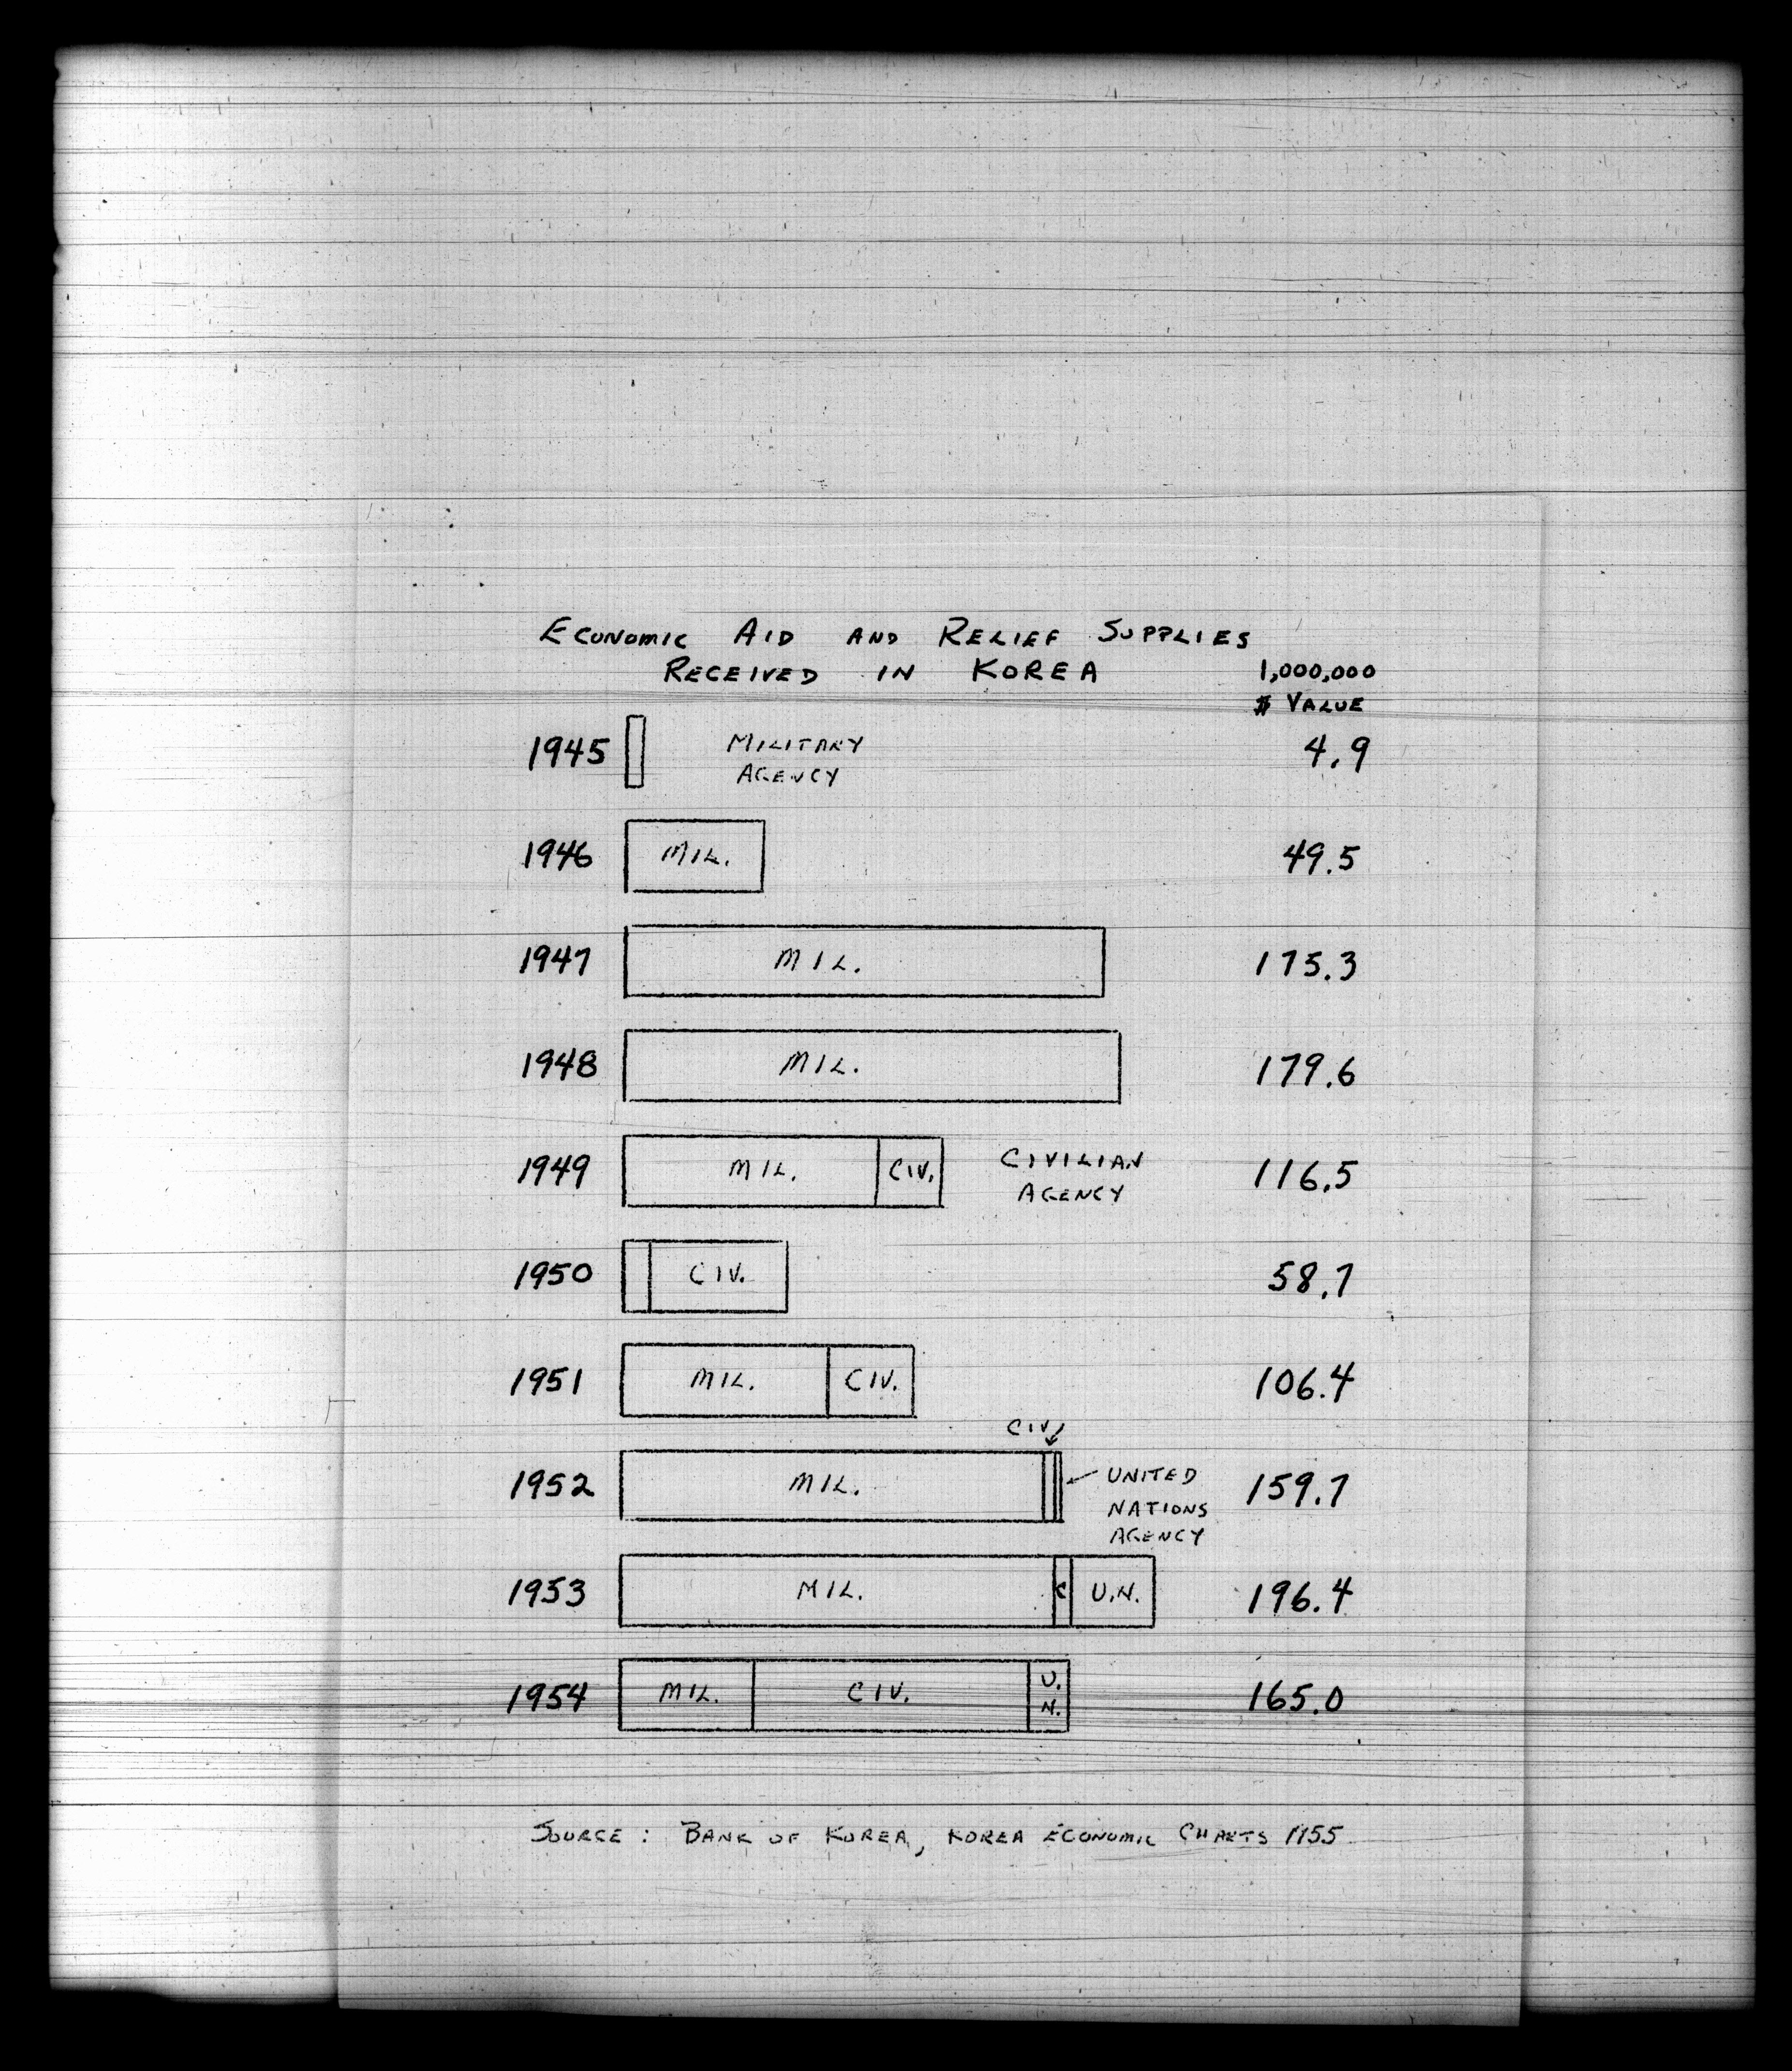 ECONOMIC AID AND RELIEF SUPPLIES
RECEIVED IN KOREA
1,000,000
$ VALUE
1945 MILITARY 4.9
AGENCY
1946 MIL. 49.5
1947 MIL. 175.3
1948 MIL. 179.6
1949 MIL. CIV. CIVILIAN 116.5
AGENCY
1950 CIV. 58.7
1951 MIL. CIV. 106.4
CIV
1952 MIL. UNITED 159.7
NATIONS
AGENCY
1953 MIL. C U.N. 196.4
1954 MIL. CIV. U. 165.0
N.
SOURCE : BANK OF KOREA, KOREA ECONOMIC CHARTS 1955